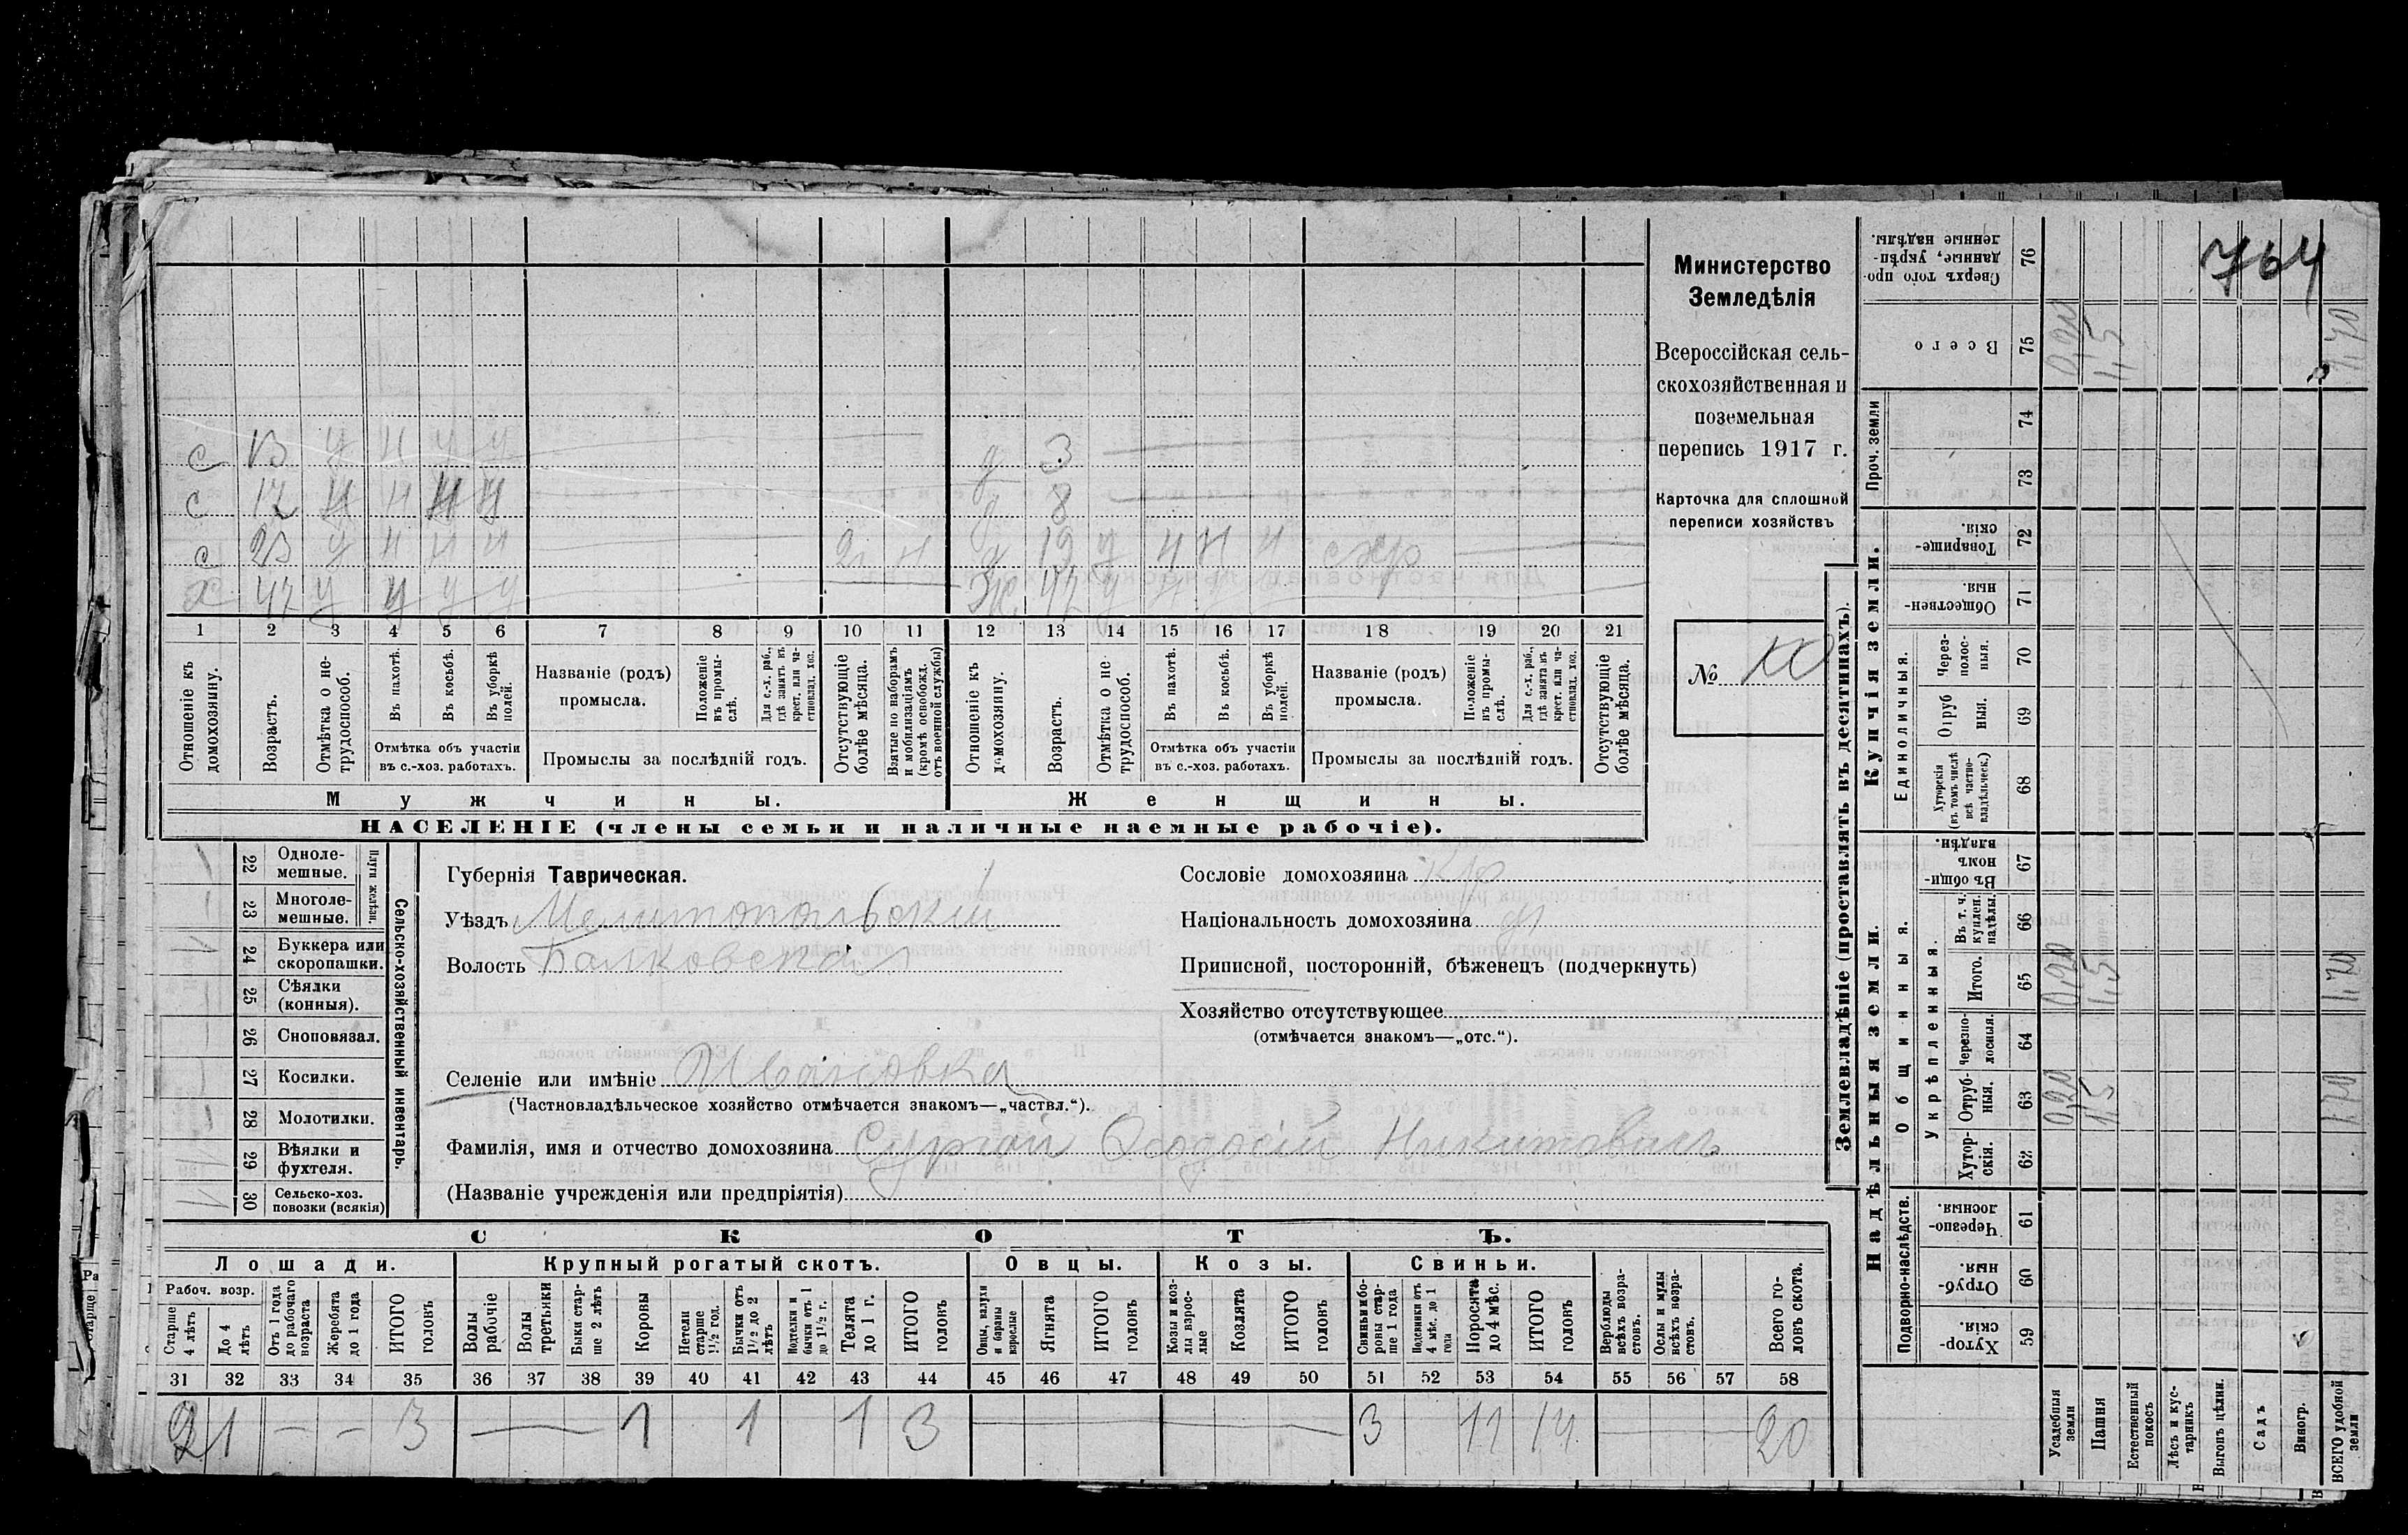 764
с 13 у ч у у д 3
с 17 ч ч ч ч д 8
с 23 у ч ч ч 2 ч д 19 у ч ч ч схр
х 47 у у у у ж 47 у ч у у
1 2 3 4 5 6 7 8 9 10 11 12 13 14 15 16 17 18 19 20 21
Отношеніе къ домохозяину.
Возрастъ.
Отмѣтка о нетрудоспособ.
Въ пахотѣ.
Въ косьбѣ.
Въ уборкѣ полей.
Отмѣтка объ участіи въ с.-хоз. работахъ.
Названіе (родъ) промысла.
Положеніе въ промыслѣ.
Для с.-х. раб., гдѣ занятъ въ крест. или частновлад. хоз.
Промыслы за послѣдній годъ.
Отсутствующіе болѣе мѣсяца.
Взятые по наборамъ и мобилизаціямъ (кромѣ освобожд. отъ военной службы)
Отношеніе къ домохозяину.
Возрастъ.
Отмѣтка о не трудоспособ.
Въ пахотѣ.
Въ косьбѣ.
Въ уборкѣ полей.
Отмѣтка объ участіи въ с.-хоз. работахъ.
Названіе (родъ) промысла.
Положеніе въ промыслѣ.
Для с.-х. раб., гдѣ занята въ крест. или частновлад. хоз.
Промыслы за послѣдній годъ.
Отсутствующіе болѣе мѣсяца.
Мужчины. Женщины.
НАСЕЛЕНІЕ (члены семьи и наличные наемные рабочіе).
Министерство
Земледѣлія
Всероссійская сель-
скохозяйственная и
поземельная
перепись 1917 г.
Карточка для сплошной
переписи хозяйствъ
№
22 Однолемешные.
23 Многолемешные.
Плуги желѣзн.
24 Буккера или скоропашки.
25 Сѣялки (конныя).
26 Сноповязал.
27 Косилки.
28 Молотилки.
29 Вѣялки и фухтеля.
30 Сельско-хоз. повозки (всякія)
Сельско-хозяйственный инвентарь.
Губернія Таврическая.
Уѣздъ Мелитопольскій
Волость Балковская
Селеніе или имѣніе Ивановка
(Частновладѣльческое хозяйство отмѣчается знакомъ—„частвл.“).
Фамилія, имя и отчество домохозяина Сургай Ѳеодосій Никитовичъ
(Названіе учрежденія или предпріятія)
Сословіе домохозяина кр
Національность домохозяина
Приписной, посторонній, бѣженецъ (подчеркнуть)
Хозяйство отсутствующее
(отмѣчается знакомъ—„отс.“).
СКОТЪ.
Лошади. Крупный рогатый скотъ. Овцы. Козы. Свиньи.
Рабоч. возр.
Старше 4 лѣтъ
До 4 лѣтъ
Отъ 1 года до рабочаго возраста
Жеребята до 1 года
ИТОГО головъ
Волы рабочіе
Волы третьяки
Быки старше 2 лѣтъ
Коровы
Нетели старше 1½ год.
Бычки отъ 1½ до 2 лѣтъ
Подтелки и бычки отъ 1 до 1½ г.
Телята до 1 г.
ИТОГО головъ
Овцы, валухи и бараны взрослые
Ягнята
ИТОГО головъ
Козы и козлы взрослые
Козлята
ИТОГО головъ
Свиньи и боровы старше 1 года
Подсвинки отъ 4 мѣс. до 1 года
Поросята до 4 мѣс.
ИТОГО головъ
Верблюды всѣхъ возрастовъ.
Ослы и мулы всѣхъ возрастовъ.
Всего головъ скота.
31 32 33 34 35 36 37 38 39 40 41 42 43 44 45 46 47 48 49 50 51 52 53 54 55 56 57 58
2 1 — — 3 — 1 1 1 3 — 3 11 14 — 20
Землевладѣніе (проставлять въ десятинахъ).
Купчія земли.
Надѣльныя земли.
Сверхъ того проданные, укрѣпленные надѣлы. 76
Всего 75 0,20 1,5 1,70
Проч. земли 74 73
Товарищескія. 72
Общественныя. 71
Единоличныя.
Черезполосныя. 70
Отрубныя. 69
Хуторскія (въ томъ числѣ всѣ частновладѣльческ.) 68
Общинныя.
Въ общинномъ владѣн. 67
Укрѣпленныя.
Въ т. ч. куплен. надѣлы. 66
Итого. 65 0,20 1,5 1,70
Черезполосныя. 64
Отрубныя. 63 0,20 1,5 1,70
Хуторскія. 62
Подворно-наслѣдств.
Черезполосныя. 61
Отрубныя. 60
Хуторскія. 59
Усадебныя земли
Пашня
Естественный покосъ
Лѣсъ и кустарникъ
Выгонъ цѣлин.
Садъ
Виногр.
ВСЕГО удобной земли